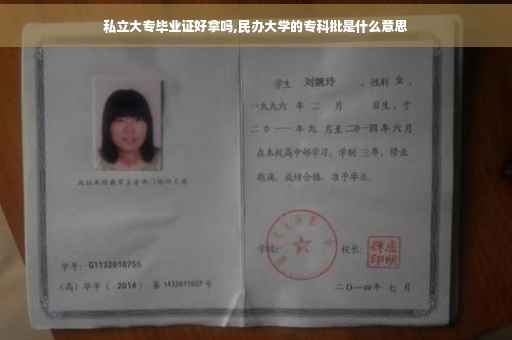 私立大专毕业证好拿吗,民办大学的专科批是什么意思
学生 刘婉玲 ，性别 女 ，
一九九六 年 二 月 日生，于
二〇一一 年 九 月至二〇一四年 六 月
在本校高中部学习，学制 三年，修业
期满，成绩合格，准予毕业。
学校：
校长：
学号：G1132010755
（高）毕字（ 2014 ）第 1432011027 号
二〇一四年 七 月